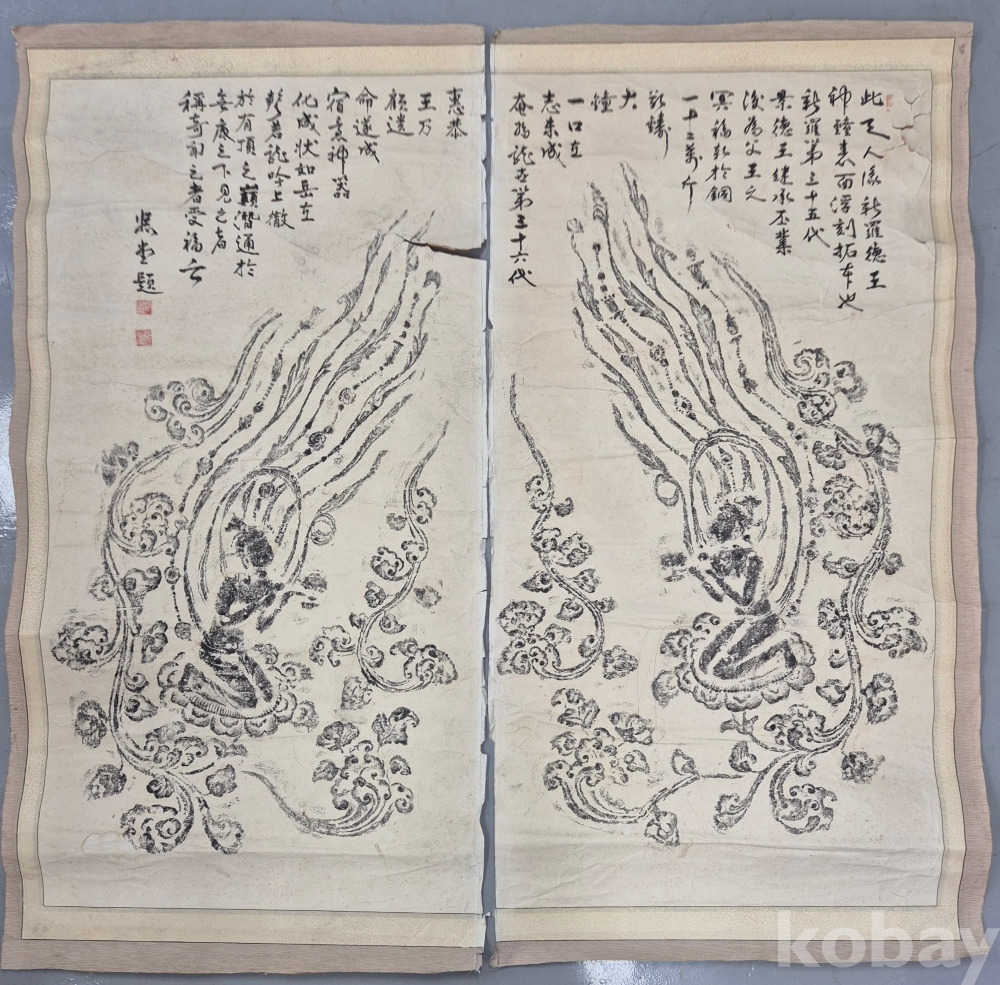 此天人係新羅德王
神鐘表面浮刻拓本也
新羅第三十五代
景德王繼承丕業
後為父王之
冥福欲於銅
一十二萬斤
欲鑄
大
鐘
一口立
志未成
奄為就世第三十六代
惠恭
王乃
顧遺
命遂成
宿意神器
化成狀如岳立
聲若龍吟上徹
於有頂之巔潛通於
無底之下見之者
稱奇聞之者受福云
堂題
kobay